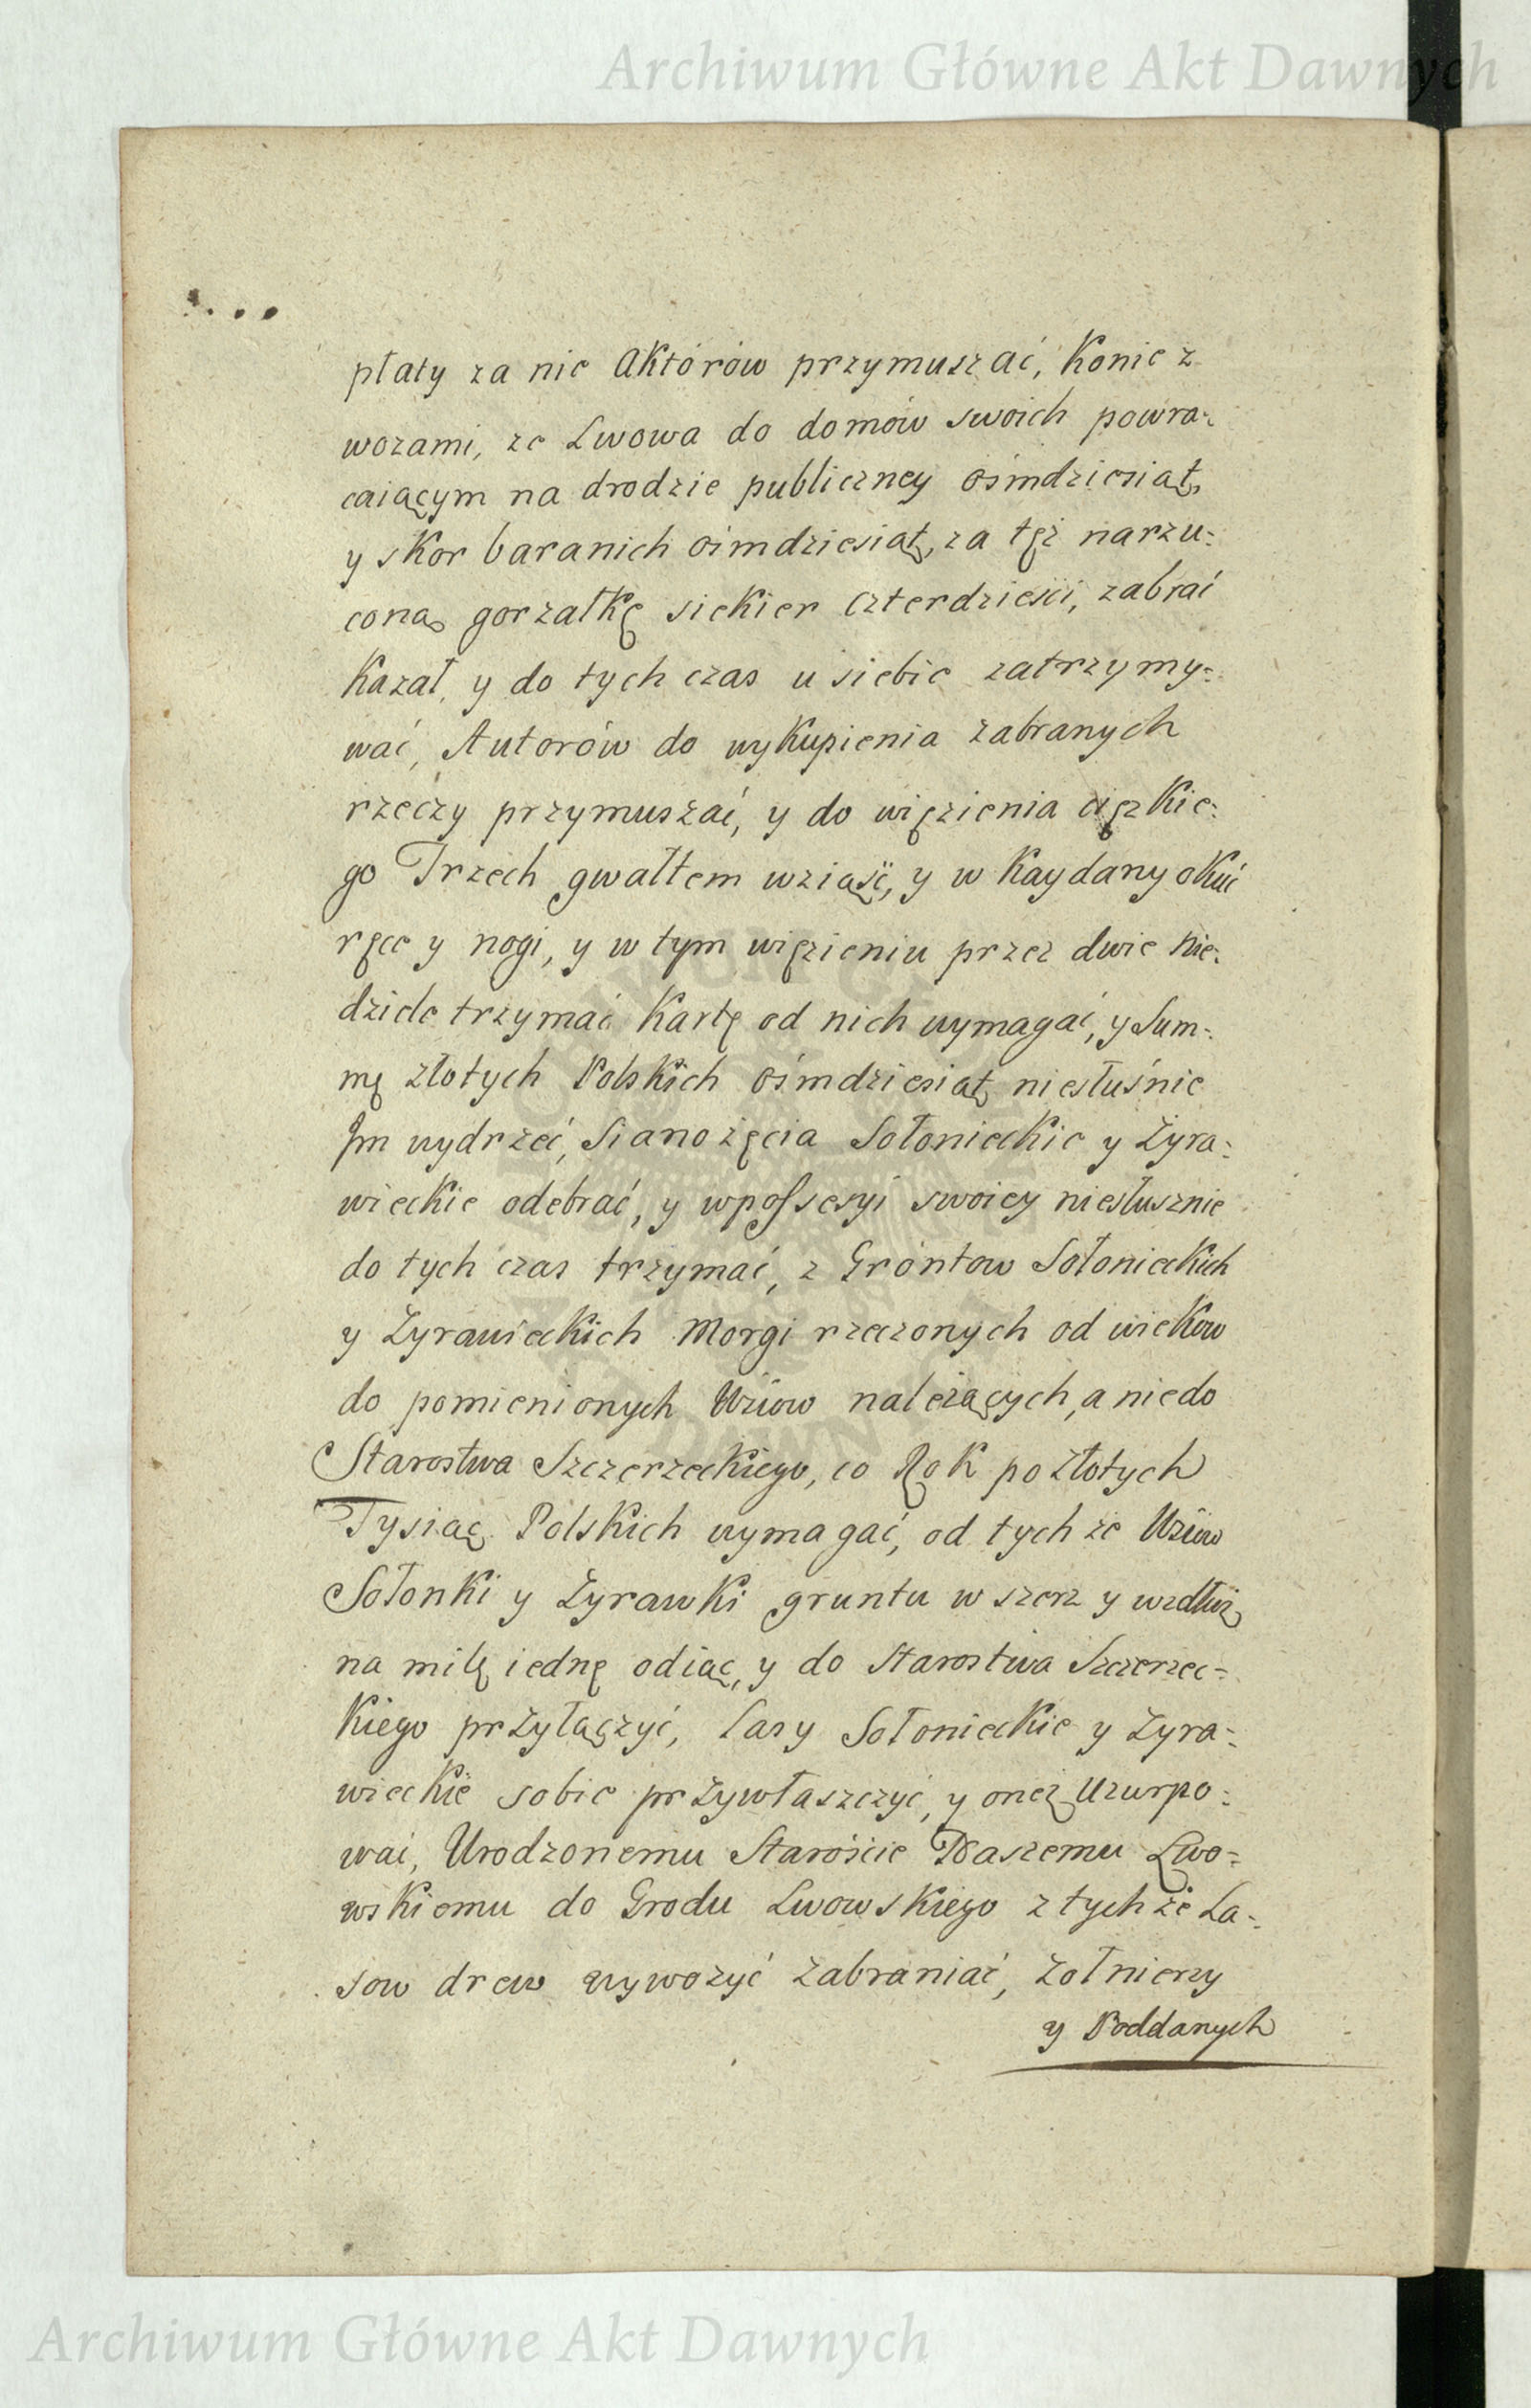 Archiwum Główne Akt Dawnych
płaty za nie Aktórów przymuszać, Konie z
wozami, ze Lwowa do domów swoich powra=
caiącym na drodzie publiczney ośmdziesiąt,
y skor baranich ośmdziesiąt, za tęż narzu=
coną gorzałkę siekier czterdzieści, zabrać
Kazał, y do tych czas u siebie zatrzymy=
wać, Autorów do wykupienia zabranych
rzeczy przymuszać, y do więzienia cięzkie=
go Trzech gwałtem wziąść, y w Kaydany okuć
ręce y nogi, y w tym więzieniu przez dwie nie=
dziele trzymać Kartę od nich wymagać, y Sum=
mę złotych Polskich ośmdziesiąt niesłuśnie
Im wydrzeć, Sianożęcia Sołonieckie y Żyra=
wieckie odebrać, y wpossesyi swoiey niesłusznie
do tych czas trzymać, z Gróntow Sołonieckich
y Zyrawieckich Morgi rzeczonych od wieków
do pomienionych Wsiow należących, a niedo
Starostwa Szczerzeckiego, co Rok po Złotych
Tysiąc Polskich wymagać, od tych ze Wsiow
Sołonki y Zyrawki gruntu w szerz y wzdłuż
na milę iednę odiąć, y do Starostwa Szczerzec=
Kiego przyłączyć, Lasy Sołonieckie y Zyra=
wieckie sobie przywłaszczyć, y oneż Uzurpo=
wać, Urodzonemu Starościе Naszemu Lwo=
wskiemu do Grodu Lwowskiego z tychże La=
sow drew wywozyć zabraniać, Zołnierzy
y Poddanych
Archiwum Główne Akt Dawnych